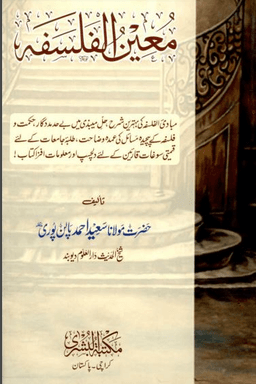 معین الفلسفہ
مبادئ الفلسفہ کی بہترین شرح، حل میبذی میں بے حد مددگار، حکمت و
فلسفہ کے پیچیدہ مسائل کی عمدہ وضاحت، طلبۂ جامعات کے لئے
قیمتی سوغات، قارئین کے لئے دلچسپ اور معلومات افزا کتاب!
تالیف
حضرت مولانا سعید احمد پالن پوری
شیخ الحدیث دار العلوم دیوبند
مکتبۃ البشریٰ
کراچی - پاکستان